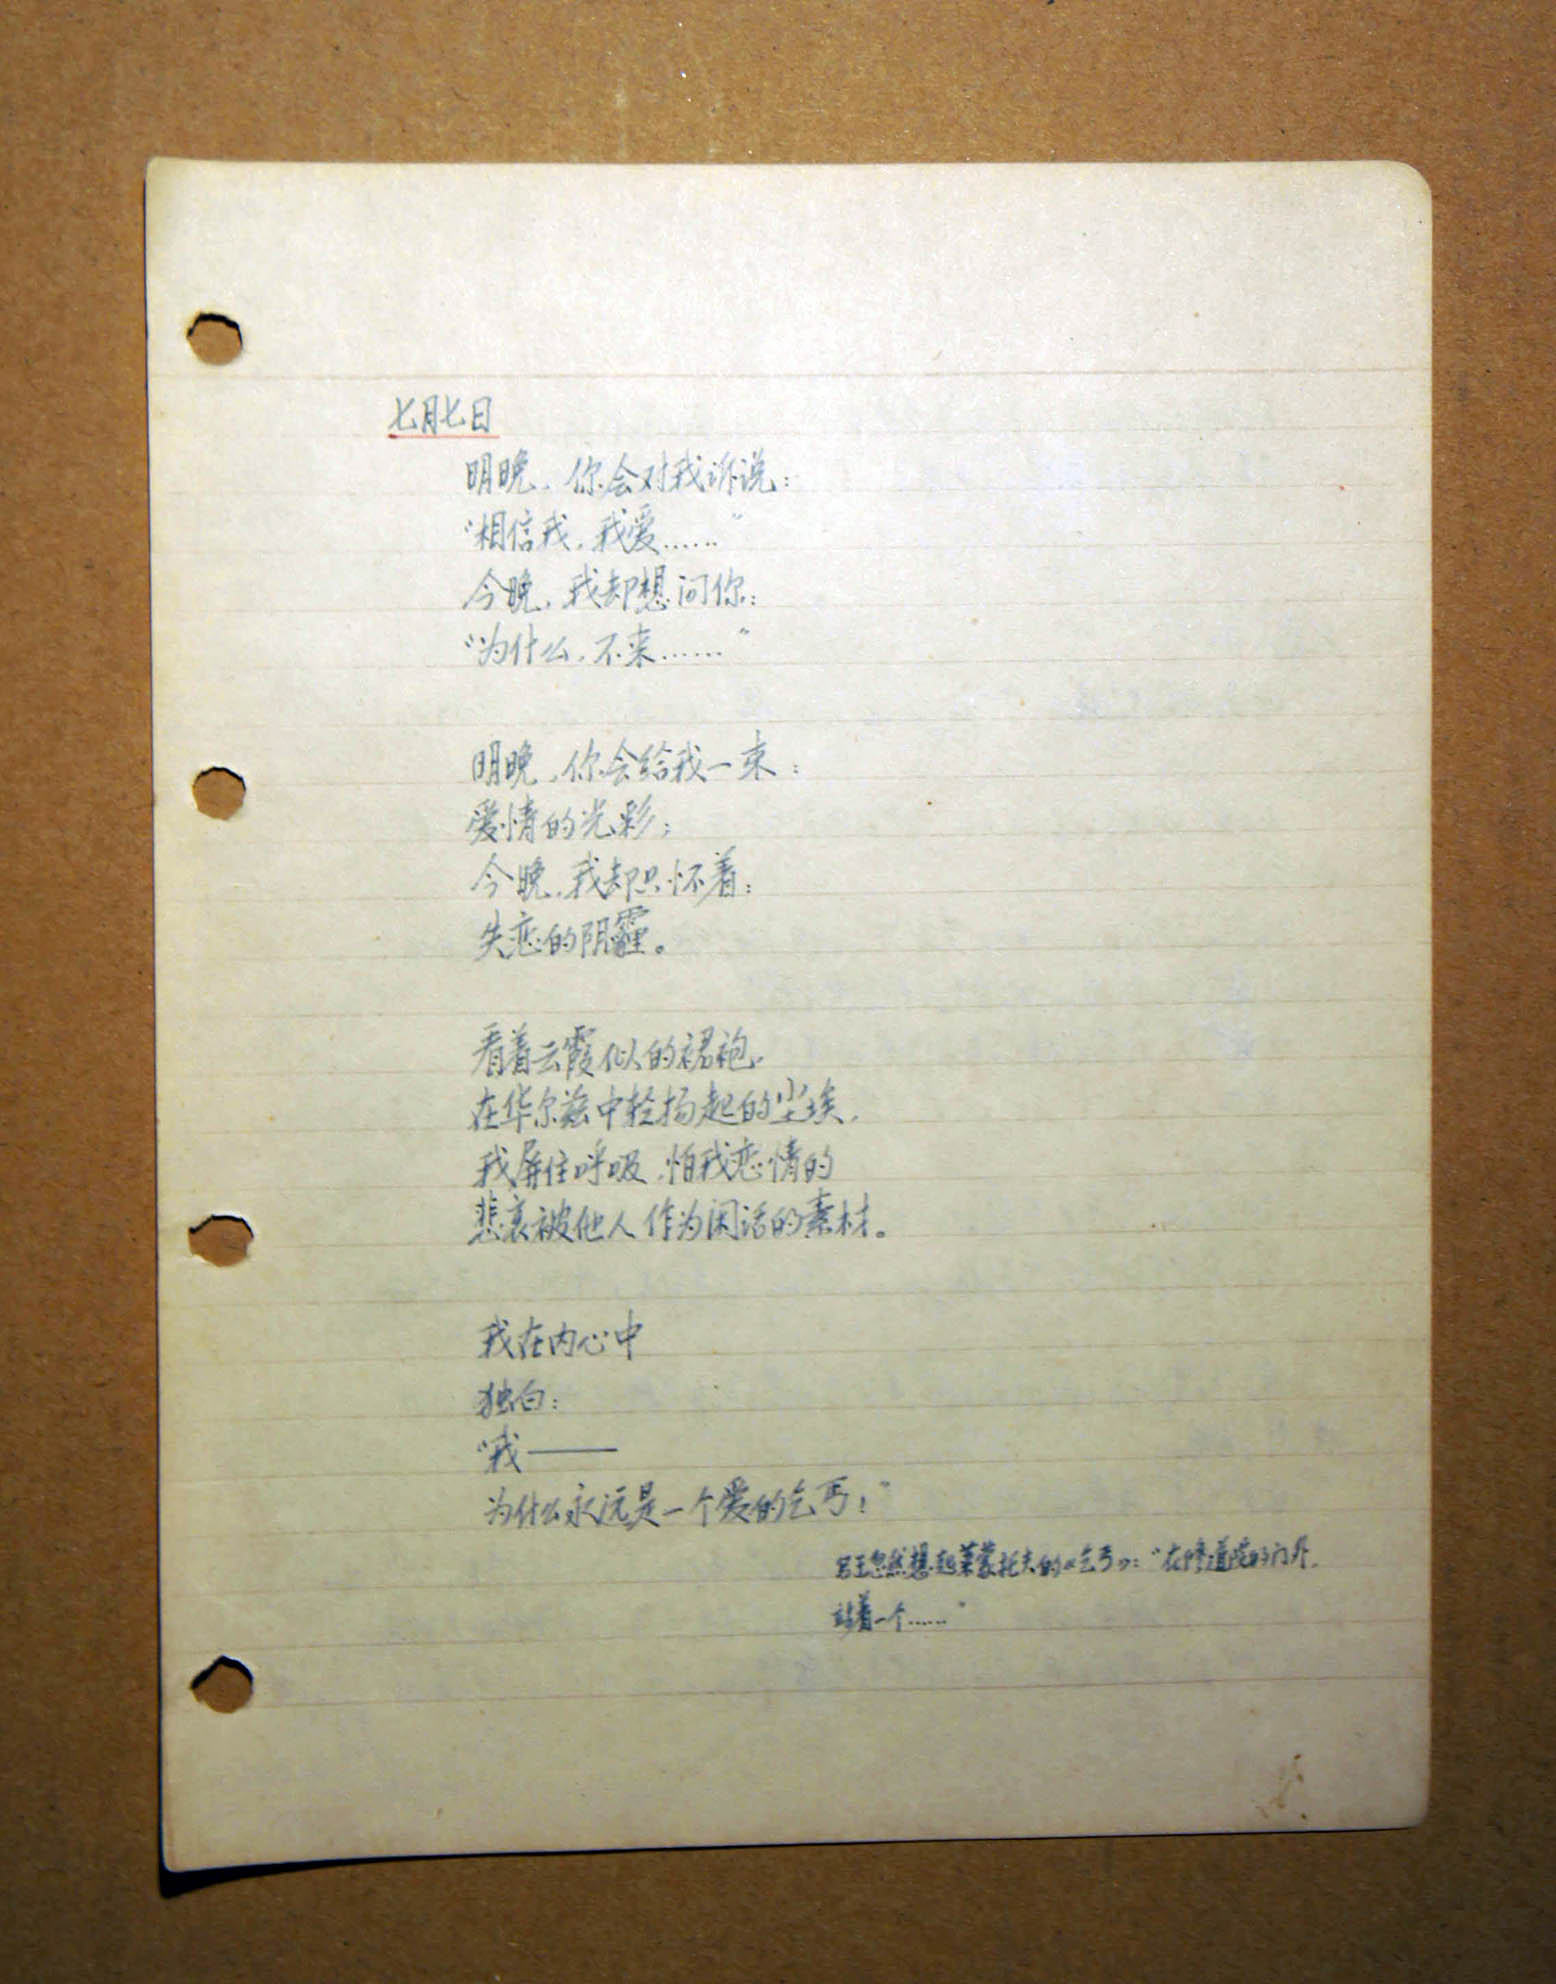 七月七日
明晚，你会对我诉说：
“相信我，我爱……”
今晚，我却想问你：
“为什么，不来……”
明晚，你会给我一束：
爱情的光彩；
今晚，我却只怀着：
失恋的阴霾。
看着云霞似的裙袍，
在华尔兹中轻扬起的尘埃，
我屏住呼吸，怕我恋情的
悲哀被他人作为闲话的素材。
我在内心中
独白：
“我——
为什么永远是一个爱的乞丐！”
忽然想起莱蒙托夫的《乞丐》：“在修道院的门外，
站着一个……”